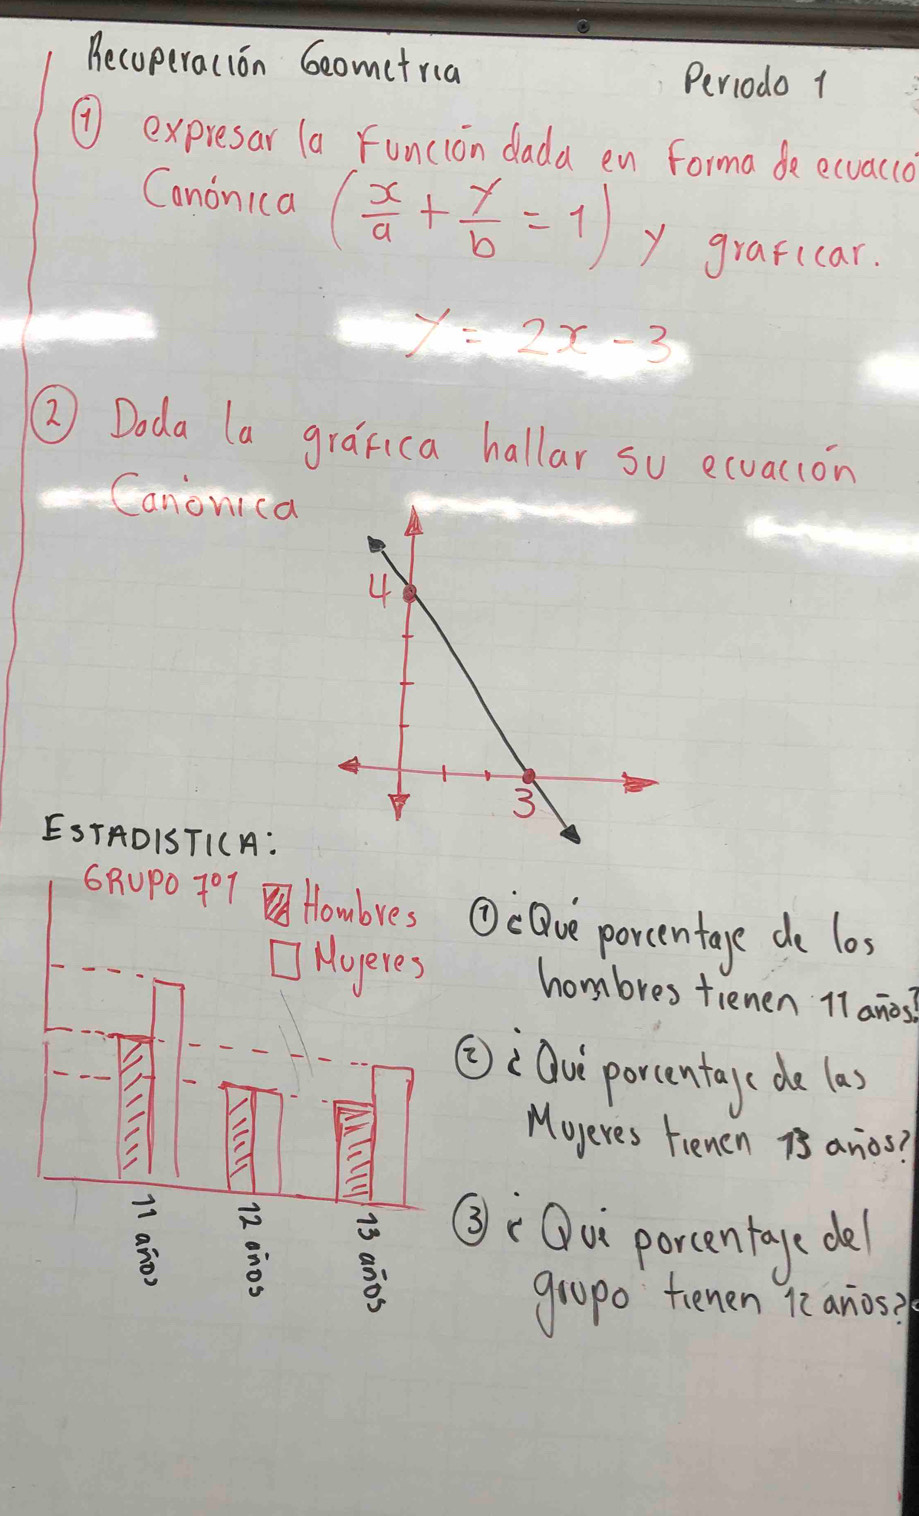 Recuperación Geometría
Periodo 1
① expresar la Función dada en Forma de ecuació
Canónica (x/a + y/b = 1) y graficar.
y = 2x - 3
② Dada la gráfica hallar su ecuación
Canónica
4
3
ESTADISTICA:
GRUPO 7º1
Hombres
Mujeres
11 años
12 años
13 años
① ¿Qué porcentaje de los
hombres tienen 11 años?
② ¿Qué porcentaje de las
Mujeres tienen 13 años?
③ ¿Qué porcentaje del
grupo tienen 12 años?